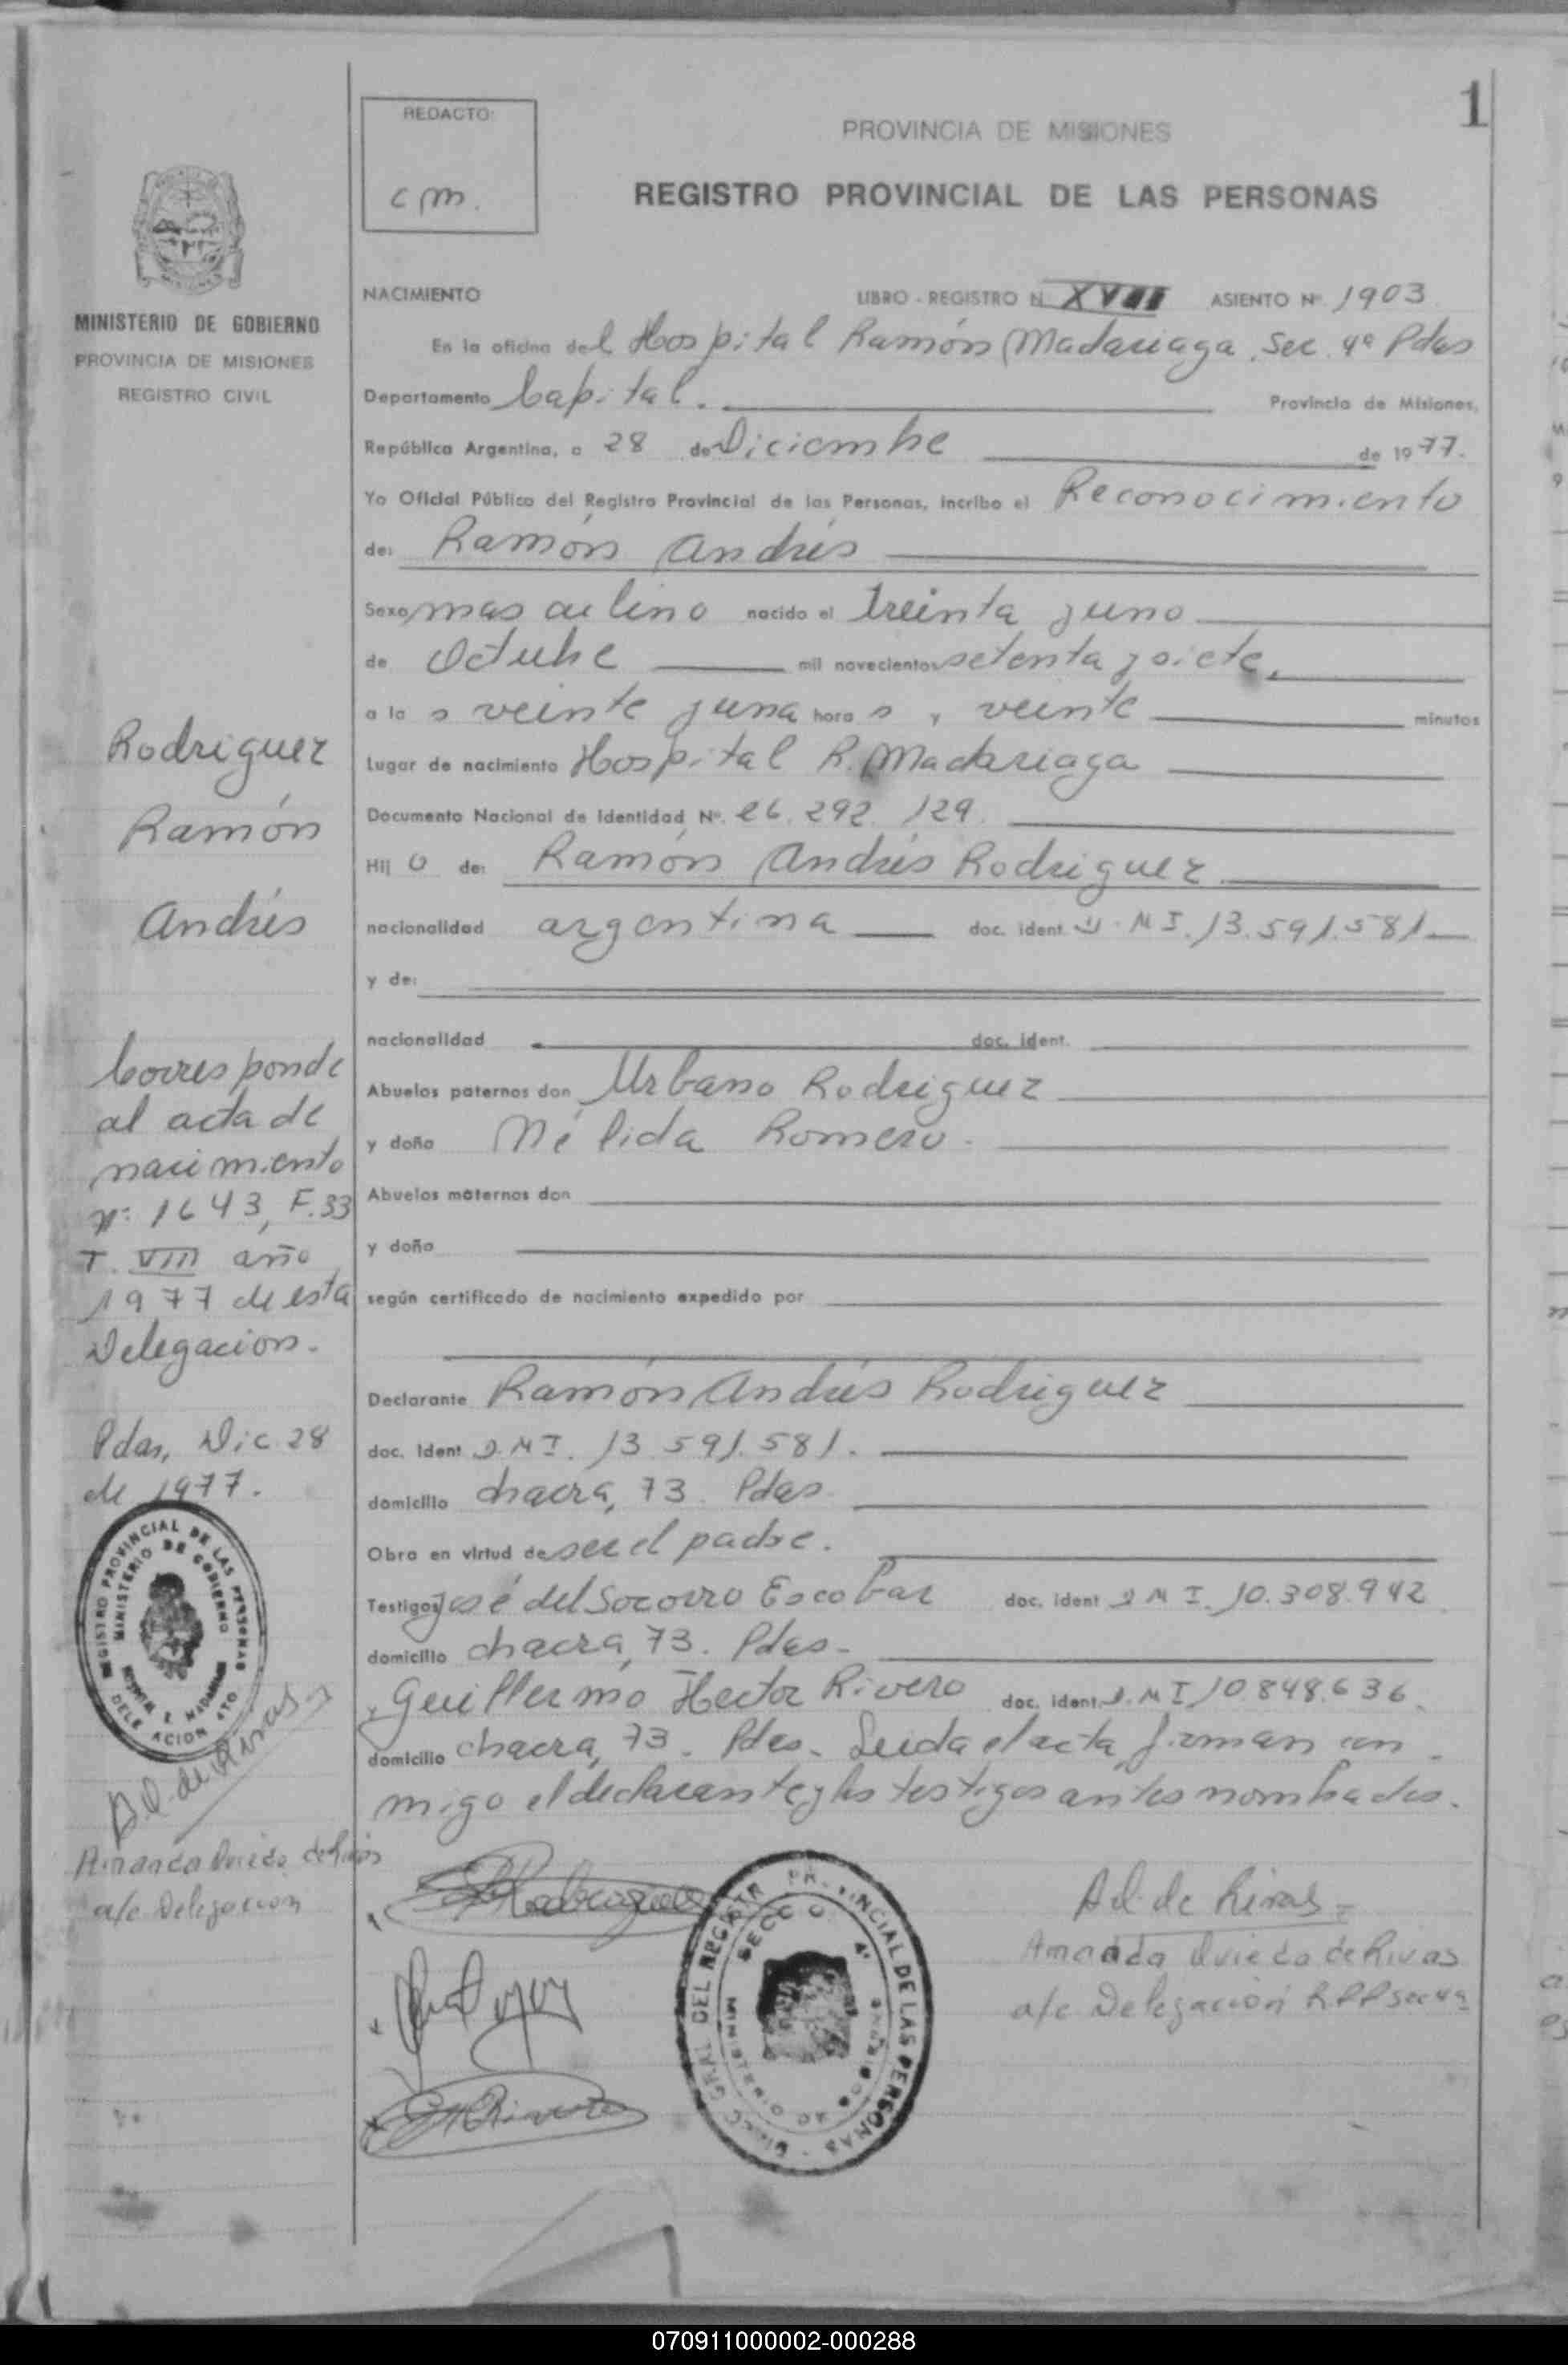 1
REDACTO:
cm.
PROVINCIA DE MISIONES
REGISTRO PROVINCIAL DE LAS PERSONAS
MINISTERIO DE GOBIERNO
PROVINCIA DE MISIONES
REGISTRO CIVIL
NACIMIENTO LIBRO - REGISTRO N. ASIENTO Nº. 1903
En la oficina del Hospital Ramón Madariaga. Sec. 4ª Pdas
Departamento Capital. Provincia de Misiones,
República Argentina, a 28 de Diciembre de 1977.
Yo Oficial Público del Registro Provincial de las Personas, incribo el Reconocimiento
de: Ramón Andrés
Sexo masculino nacido el treinta y uno
de Octubre mil novecientos setenta y siete,
a la s veinte y una hora s y veinte minutos
Lugar de nacimiento Hospital R. Madariaga
Documento Nacional de Identidad Nº. 26.292.129.
Hij o de: Ramón Andrés Rodriguez
nacionalidad argentina doc. ident. D.N.I. 13.591.581
y de:
nacionalidad doc. ident.
Abuelos paternos don Urbano Rodriguez
y doña Nélida Romero.
Abuelos maternos don
y doña
según certificado de nacimiento expedido por
Declarante Ramón Andrés Rodriguez
doc. ident D.N.I. 13.591.581.
domicilio chacra, 73. Pdas.
Obra en virtud de ser el padre.
Testigos José del Socorro Escobar doc. ident D.N.I. 10.308.942
domicilio chacra, 73. Pdas.
y Guillermo Hector Rivero doc. ident. D.N.I 10.848.636.
domicilio chacra, 73. Pdas. Leida el acta, firman con
migo el declarante y los testigos antes nombrados.
Rodriguez
Ramón
Andrés
Corresponde
al acta de
nacimiento
nº: 1643, F.33
T. VIII año
1977 de esta
Delegacion.
Pdas, Dic 28
de 1977.
REGISTRO PROVINCIAL DE LAS PERSONAS
MINISTERIO DE GOBIERNO
A.O. de Rivas
Amanda Oviedo de Rivas
a/c Delegacion
A.O. de Rivas
Amanda Oviedo de Rivas
a/c Delegacion RPP sec 4ª
070911000002-000288